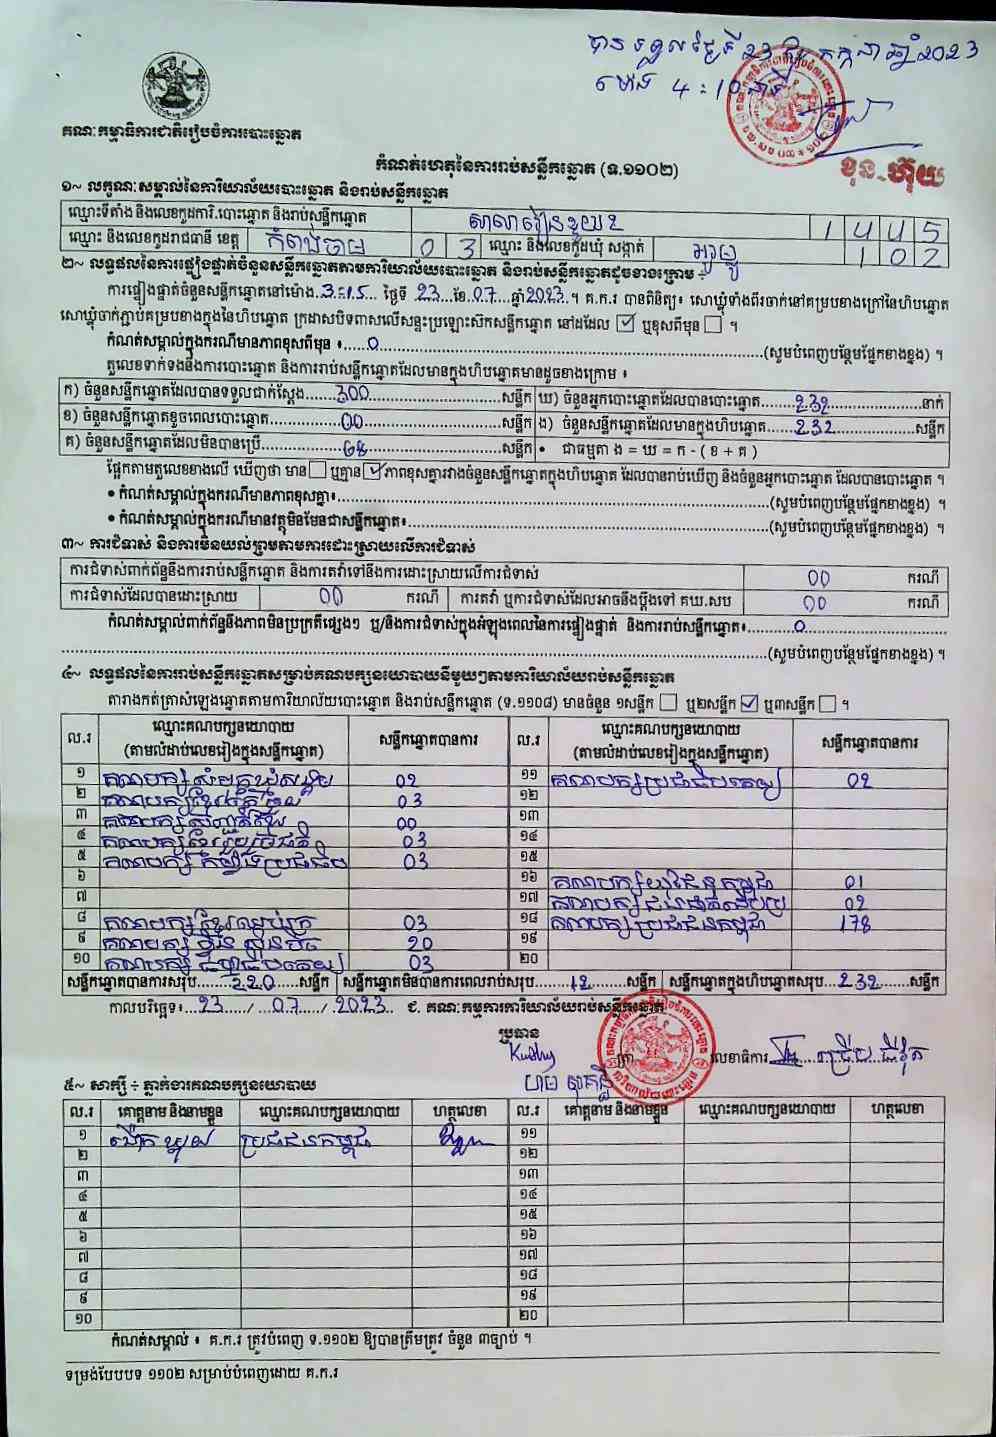 បានទទួលថ្ងៃទី 23 ខែ កក្កដា ឆ្នាំ 2023
ម៉ោង 4:10 នាទី
គណៈកម្មាធិការជាតិរៀបចំការបោះឆ្នោត
ខុន-ហ៊ុយ
កំណត់ហេតុនៃការរាប់សន្លឹកឆ្នោត (ទ.១១០២)
១~ លក្ខណៈសម្គាល់នៃការិយាល័យបោះឆ្នោត និងរាប់សន្លឹកឆ្នោត
ឈ្មោះទីតាំង និងលេខកូដការិ.បោះឆ្នោត និងរាប់សន្លឹកឆ្នោត សាលារៀន 1445
ឈ្មោះ និងលេខកូដរាជធានី ខេត្ត កំពង់ចាម 03 ឈ្មោះ និងលេខកូដឃុំ សង្កាត់ 102
២~ លទ្ធផលនៃការផ្ទៀងផ្ទាត់ចំនួនសន្លឹកឆ្នោតតាមការិយាល័យបោះឆ្នោត និងរាប់សន្លឹកឆ្នោតដូចខាងក្រោម ÷
ការផ្ទៀងផ្ទាត់ចំនួនសន្លឹកឆ្នោតនៅម៉ោង 3:15 ថ្ងៃទី 23 ខែ 07 ឆ្នាំ 2023 ។ គ.ក.រ បានពិនិត្យ៖ សោឃ្លុំទាំងពីរចាក់នៅគម្របខាងក្រៅនៃហិបឆ្នោត
សោឃ្លុំចាក់ភ្ជាប់គម្របខាងក្នុងនៃហិបឆ្នោត ក្រដាសបិទពាសលើសន្ទះប្រឡោះស៊កសន្លឹកឆ្នោត នៅដដែល ☑ ឬខុសពីមុន ☐ ។
កំណត់សម្គាល់ក្នុងករណីមានភាពខុសពីមុន ៖ 0 (សូមបំពេញបន្ថែមផ្នែកខាងខ្នង) ។
តួលេខទាក់ទងនឹងការបោះឆ្នោត និងការរាប់សន្លឹកឆ្នោតដែលមានក្នុងហិបឆ្នោតមានដូចខាងក្រោម ៖
ក) ចំនួនសន្លឹកឆ្នោតដែលបានទទួលជាក់ស្តែង 300 សន្លឹក ឃ) ចំនួនអ្នកបោះឆ្នោតដែលបានបោះឆ្នោត 232 នាក់
ខ) ចំនួនសន្លឹកឆ្នោតខូចពេលបោះឆ្នោត 00 សន្លឹក ង) ចំនួនសន្លឹកឆ្នោតដែលមានក្នុងហិបឆ្នោត 232 សន្លឹក
គ) ចំនួនសន្លឹកឆ្នោតដែលមិនបានប្រើ 68 សន្លឹក • ជាធម្មតា ង = ឃ = ក - ( ខ + គ )
ផ្អែកតាមតួលេខខាងលើ ឃើញថា មាន ☐ ឬគ្មាន ☑ ភាពខុសគ្នារវាងចំនួនសន្លឹកឆ្នោតក្នុងហិបឆ្នោត ដែលបានរាប់ឃើញ និងចំនួនអ្នកបោះឆ្នោត ដែលបានបោះឆ្នោត ។
• កំណត់សម្គាល់ក្នុងករណីមានភាពខុសគ្នា៖ (សូមបំពេញបន្ថែមផ្នែកខាងខ្នង) ។
• កំណត់សម្គាល់ក្នុងករណីមានវត្ថុមិនមែនជាសន្លឹកឆ្នោត៖ (សូមបំពេញបន្ថែមផ្នែកខាងខ្នង) ។
៣~ ការជំទាស់ និងការមិនយល់ព្រមតាមការដោះស្រាយលើការជំទាស់
ការជំទាស់ពាក់ព័ន្ធនឹងការរាប់សន្លឹកឆ្នោត និងការតវ៉ាទៅនឹងការដោះស្រាយលើការជំទាស់ 00 ករណី
ការជំទាស់ដែលបានដោះស្រាយ 00 ករណី ការតវ៉ា ឬការជំទាស់ដែលអាចនឹងប្តឹងទៅ គឃ.សប 00 ករណី
កំណត់សម្គាល់ពាក់ព័ន្ធនឹងភាពមិនប្រក្រតីផ្សេងៗ ឬ/និងការជំទាស់ក្នុងអំឡុងពេលនៃការផ្ទៀងផ្ទាត់ និងការរាប់សន្លឹកឆ្នោត៖ 0
(សូមបំពេញបន្ថែមផ្នែកខាងខ្នង) ។
៤~ លទ្ធផលនៃការរាប់សន្លឹកឆ្នោតសម្រាប់គណបក្សនយោបាយនីមួយៗតាមការិយាល័យរាប់សន្លឹកឆ្នោត
តារាងកត់ត្រាសំឡេងឆ្នោតតាមការិយាល័យបោះឆ្នោត និងរាប់សន្លឹកឆ្នោត (ទ.១១០៨) មានចំនួន ១សន្លឹក ☐ ឬ២សន្លឹក ☑ ឬ៣សន្លឹក ☐ ។
ល.រ ឈ្មោះគណបក្សនយោបាយ (តាមលំដាប់លេខរៀងក្នុងសន្លឹកឆ្នោត) សន្លឹកឆ្នោតបានការ ល.រ ឈ្មោះគណបក្សនយោបាយ (តាមលំដាប់លេខរៀងក្នុងសន្លឹកឆ្នោត) សន្លឹកឆ្នោតបានការ
១ គណបក្ស 02 ១១ គណបក្សប្រជាធិបតេយ្យ 02
២ គណបក្ស 03 ១២
៣ គណបក្ស 00 ១៣
៤ គណបក្ស 03 ១៤
៥ គណបក្ស កម្ពុជា 03 ១៥
៦ ១៦ គណបក្សយុវជនកម្ពុជា 01
៧ ១៧ គណបក្ស 02
៨ គណបក្សខ្មែរឈប់ក្រ 03 ១៨ គណបក្សប្រជាជនកម្ពុជា 178
៩ គណបក្ស ហ៊្វុនស៊ិនប៉ិច 20 ១៩
១០ គណបក្ស 03 ២០
សន្លឹកឆ្នោតបានការសរុប 220 សន្លឹក សន្លឹកឆ្នោតមិនបានការពេលរាប់សរុប 12 សន្លឹក សន្លឹកឆ្នោតក្នុងហិបឆ្នោតសរុប 232 សន្លឹក
កាលបរិច្ឆេទ៖ 23 / 07 / 2023 ជ. គណៈកម្មការការិយាល័យរាប់សន្លឹកឆ្នោត
ប្រធាន
លេខាធិការ
៥~ សាក្សី ÷ ភ្នាក់ងារគណបក្សនយោបាយ
ល.រ គោត្តនាម និងនាមខ្លួន ឈ្មោះគណបក្សនយោបាយ ហត្ថលេខា ល.រ គោត្តនាម និងនាមខ្លួន ឈ្មោះគណបក្សនយោបាយ ហត្ថលេខា
១ ប្រជាជនកម្ពុជា ១១
២ ១២
៣ ១៣
៤ ១៤
៥ ១៥
៦ ១៦
៧ ១៧
៨ ១៨
៩ ១៩
១០ ២០
កំណត់សម្គាល់ ៖ គ.ក.រ ត្រូវបំពេញ ទ.១១០២ ឱ្យបានត្រឹមត្រូវ ចំនួន ៣ច្បាប់ ។
ទម្រង់បែបបទ ១១០២ សម្រាប់បំពេញដោយ គ.ក.រ